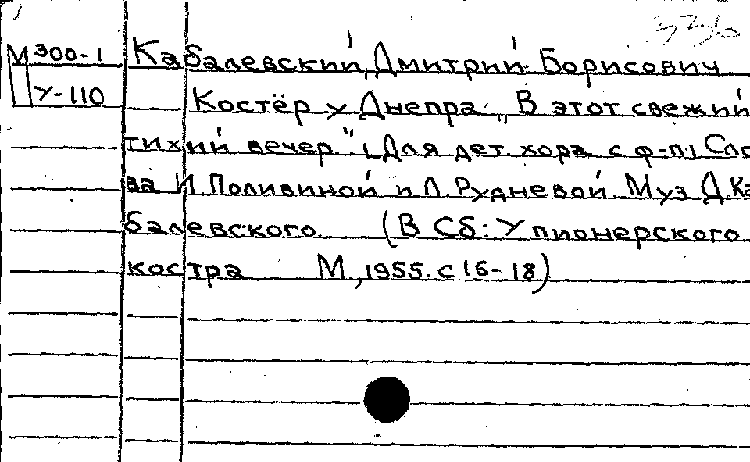 М 300-1 Кабалевский, Дмитрий Борисович
У-110 Костёр у Днепра. „В этот свежий
тихий вечер". [Для дет. хора с ф-п.] Сло
ва И. Поливиной и Л. Рудневой. Муз. Д. Ка
балевского (В Сб: У пионерского
костра М, 1955. с 16-18)